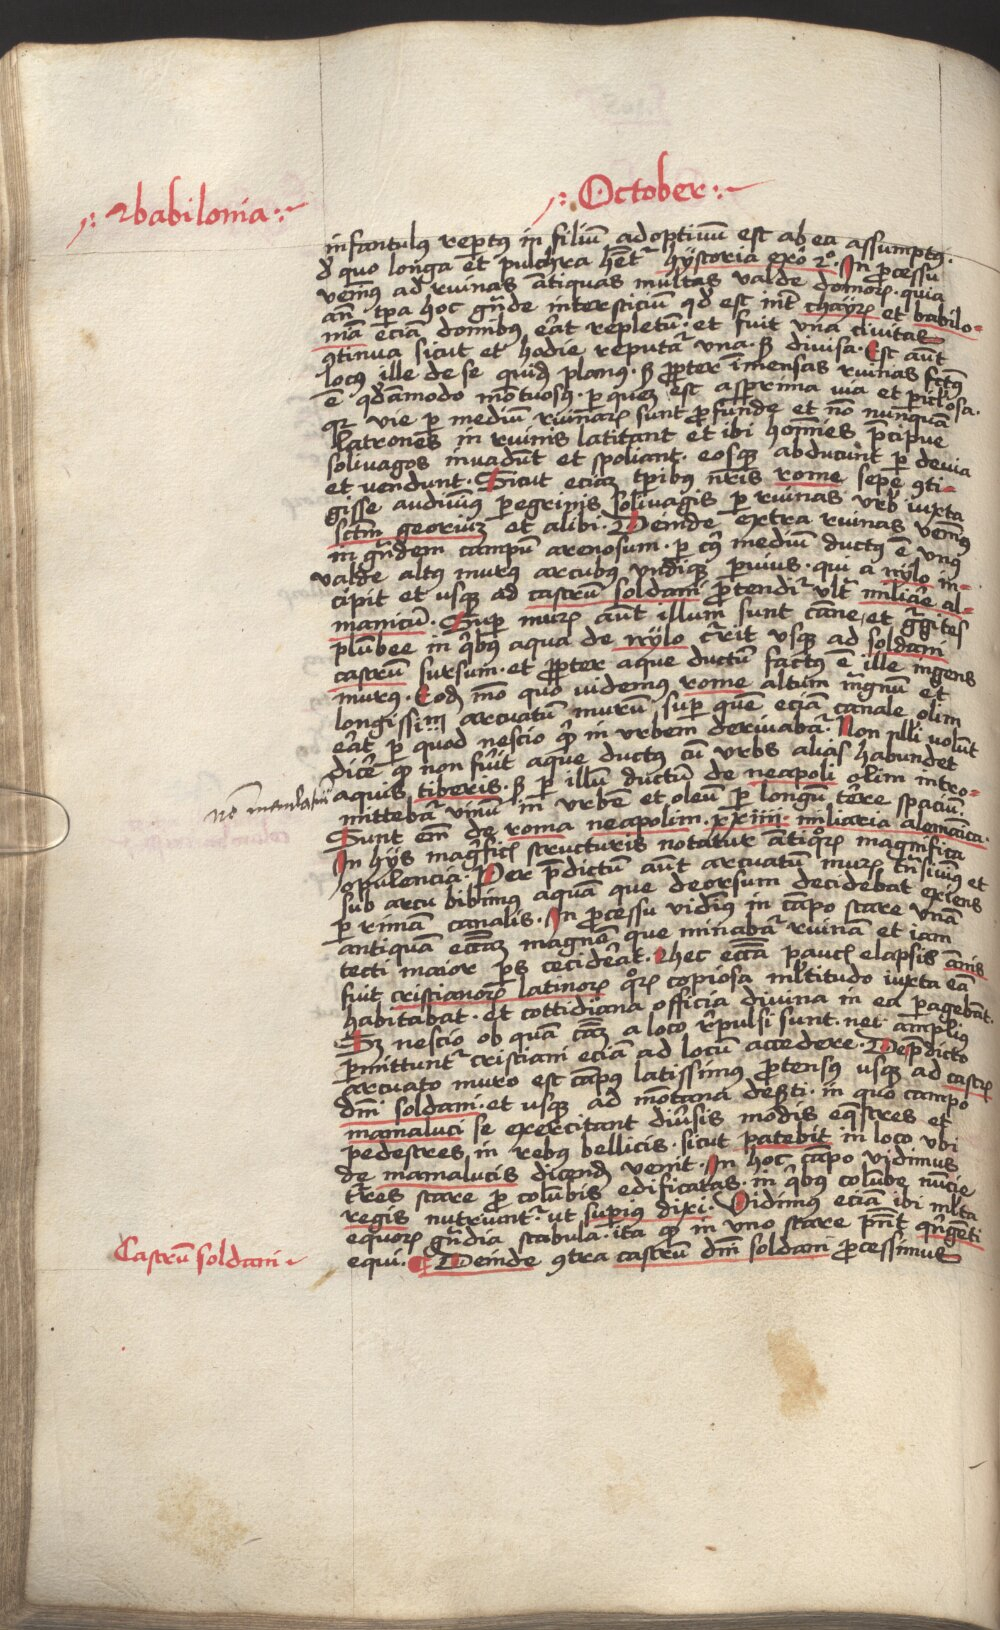 Babilonia
October
infantulus rept9 in filiū adoptiuū est ab ea assumpt9.
de quo longa et pulchra hēt᷑ hystoria exo 2o. In p̄cessu
venim9 ad ruinas antiquas multas valde domoꝝ. quia
an̄ tp̄a hoc grāde intersticiū qd est int̄ chayꝝ et babilo-
niā eciā domibus erat repletū. et fuit vna ciuitas
ꝯtinua sicut et hodie reputat᷑ vna. sꝫ diuisa. Est aūt
locus ille de se quidē planus. sꝫ propter īmensas ruinas factus
ē quodāmodo mōtuosus. per quem est asperrima via et periculosa.
qꝛ vie per mediū ruinaꝝ sunt profunde et nō nunquam
latrones in ruinis latitant et ibi homines p̄cipue
soliuagos inuadūt et spoliant. eosqꝫ abducunt per deuia
et vendunt. Sicut eciam tp̄ibus nr̄is rome sepe ꝯti-
gisse audiuimus peregrinis soliuagis per ruinas vrbis iuxta
sctm̄ georiū et alibi. Deinde extra ruinas venimus
in grādem campū arenosum. per cuius mediū ductus ē vnus
valde altus murus arcubus vndiqꝫ peruius. qui a nylo in-
cipit et usqꝫ ad castrū soldani protendit᷑ vlt᷑ miliare al-
manicū. Super muꝝ aūt illum sunt cāne et gurgites
plūbee in quibus aqua de nylo currit vsqꝫ ad soldani
castrū sursum. et propter aque ductū factus ē ille ingens
murus. Eodē mō quo videmus rome altum magnū et
longissimū arcuatū murū super quē eciā canale olim
erat per quod nescio quid in vrbem deriuabat᷑. Non nulli volūt
dicere quod non fuerit aque ductus cū vrbs alias habundet
aquis tiberis. sꝫ per illū ductum de neapoli olim intro-
no mirabile
mittebat᷑ vinū in vrbē et oleū per longū terre spaciū.
Sunt em̄ de roma neapolim xxiiii miliaria alemāica.
In hys magnificis structuris notatur antiquoꝝ magnifica
opulencia. Per p̄dictum aūt arcuatū muꝝ trāsiuimus et
sub arcu bibimus aquā que deorsum decidebat exiens
per rimā canalis. In processu vidimus in cāpo stare vnā
antiquā ecclesiā magnā que minabat᷑ ruinā et iam
tecti maior pars ceciderat. Hec ecclesia paucis elapsis annis
fuit cristianoꝝ latinoꝝ quoꝝ copiosa multitudo iuxta eā
habitabat. et cottidiana officia diuina in ea peragebāt.
Sꝫ nescio ob quā causā a loco repulsi sunt. nec amplius
permittunt᷑ cristiani eciā ad locū accedere. De p̄dicto
arcuato muro est cāpus latissimus protensus usqꝫ ad castꝝ
dn̄i soldani. et usqꝫ ad mōtana deserti. in quo campo
mamaluci se exercitant diuersis modis equestres et
pedestres in rebus bellicis. sicut patebit in loco vbi
de mamalucis dicendū venit. In hoc cāpo vidimus
turres stare pro colūbis edificatas. in quibus colūbe nūcie
regis nutriunt᷑. ut superius dixi. Vidimus eciā ibi multa
equoꝝ grādia stabula. ita quod in vno stare possent quingenti
Castrū soldani
equi. Deinde ꝯtra castrū dn̄i soldani processimus